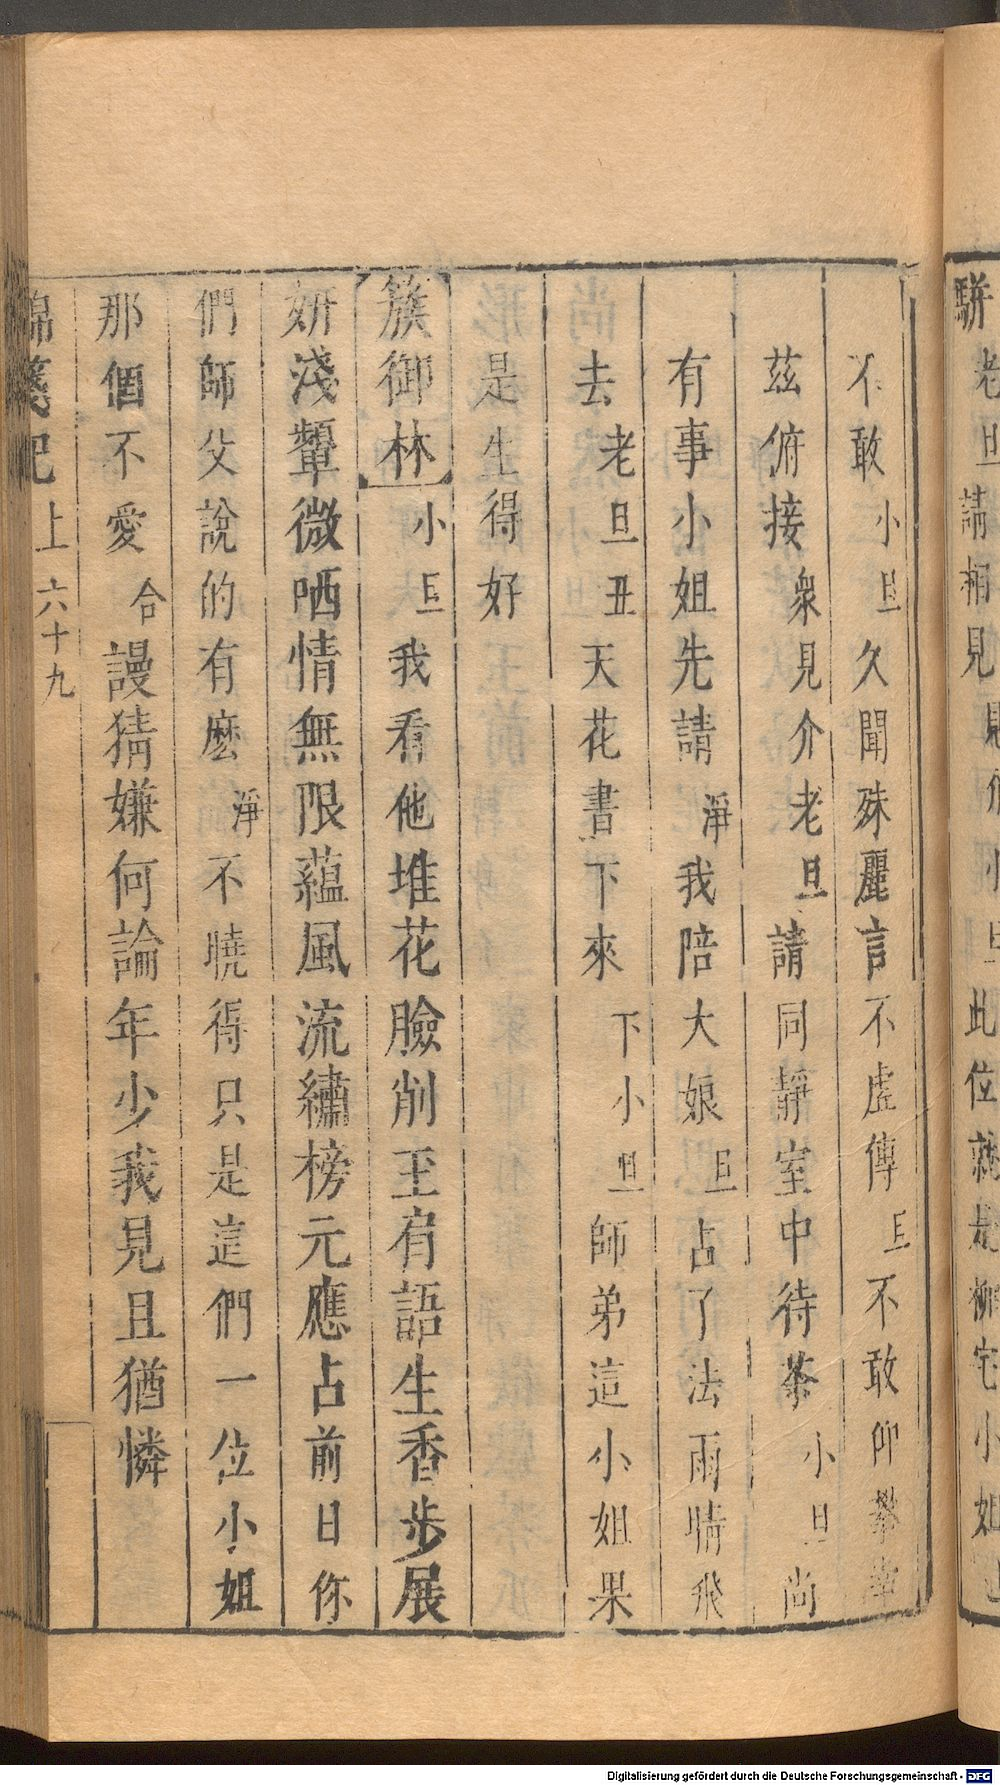 駢 老旦請相見 見介小旦此位就是柳宅小姐
不敢 小旦久聞殊麗言不虛傳 旦不敢仰攀幸
茲俯接 衆見介老旦請同靜室中待茶 小旦尚
有事小姐先請 淨我陪大娘 旦占了法雨晴飛
去 老旦丑天花書下來 下小旦師弟這小姐果
是生得好
簇御林 小旦我看他堆花臉削玉肩語生香步展
妍淺顰微哂情無限蘊風流繡榜元應占前日你
們師父說的有麽 淨不曉得只是這們一位小姐
那個不愛 合謾猜嫌何論年少我見且猶憐
錦箋記 上 六十九
Digitalisierung gefördert durch die Deutsche Forschungsgemeinschaft - DFG